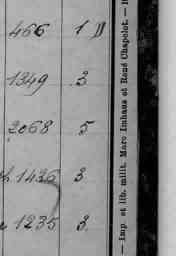 466 1 D
1349 3
2068 5
1436 3
1235 3
— Imp. et lib. milit. Marc Imhaus et René Chapelot. —